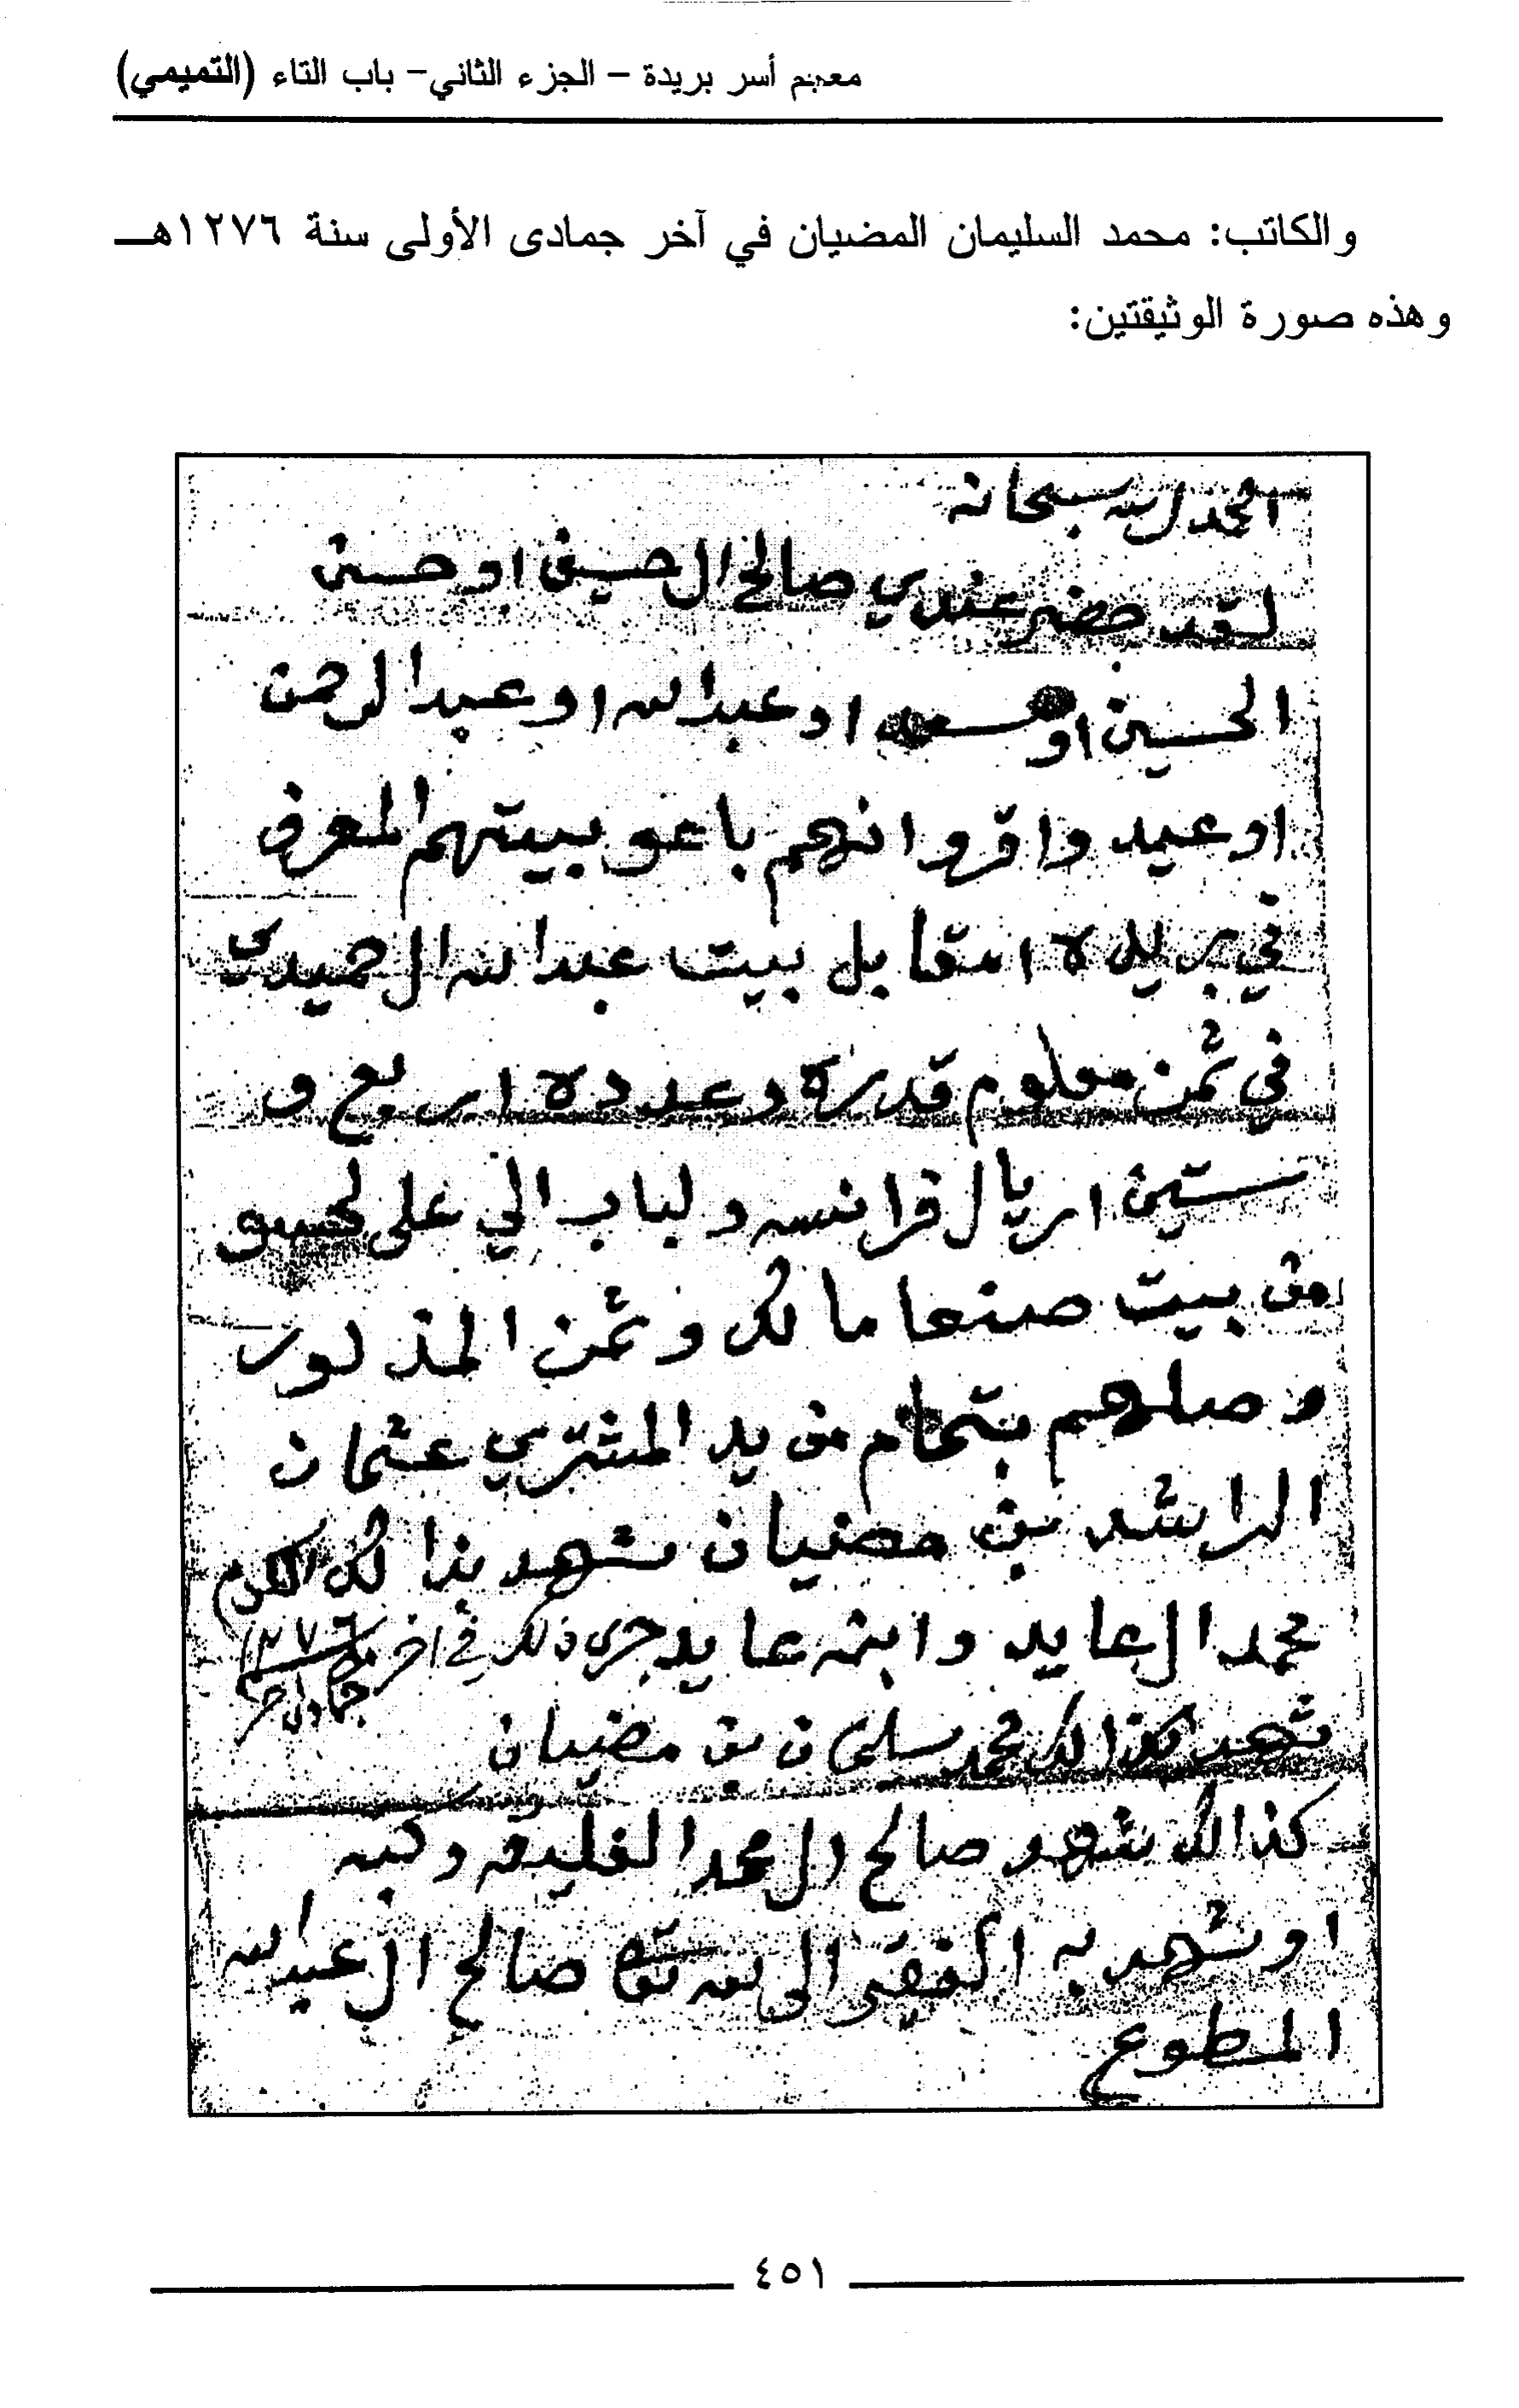 معجم أسر بريدة – الجزء الثاني– باب التاء (التميمي)
والكاتب: محمد السليمان المضيان في آخر جمادى الأولى سنة ١٢٧٦هـ
وهذه صورة الوثيقتين:
الحمد لله سبحانه
لقد حضر عندي صالح ال حسين او حسن
الحسين او سعد او عبدالله او عبدالرحمن
او عبيد واقروا انهم باعو بيتهم المعرف
في بريده امقابل بيت عبدالله ال حميدي
في ثمن معلوم قدره وعدده اربع و
ستين اريال فرانسه ولباب الي على لحسو
من بيت صنعا مالك وثمن المذكور
وصلهم بتمام من يد المشتري عثمان
الراشد بن مضيان شهد بذالك
محمد ال عايد وابنه عايد جرى ذلك في اخر ١٢٧٦
جماد
شهد بذالك محمد سليمان بن مضيان
كذالك شهد صالح ال محمد الغليقه وكتبه
او شهد به الفقير الى الله صالح ال عبدالله
المطوع
٤٥١